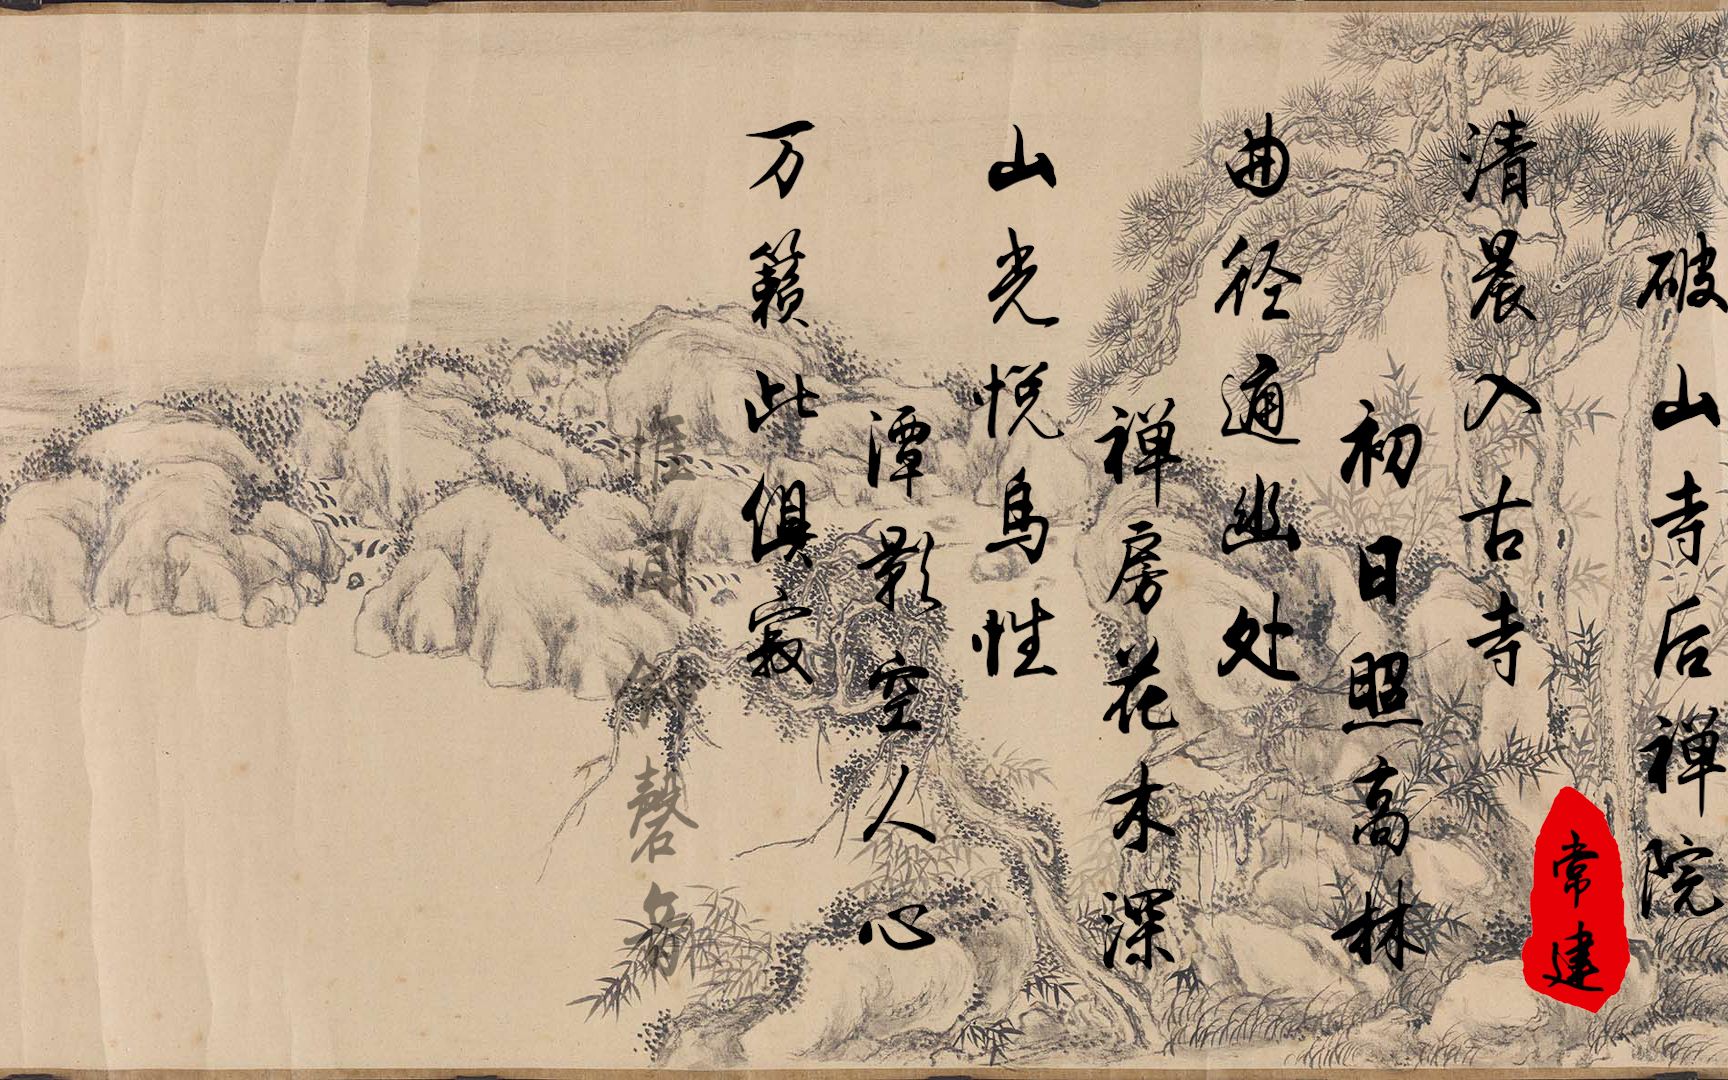 破山寺后禅院
常建
清晨入古寺
初日照高林
曲径通幽处
禅房花木深
山光悦鸟性
潭影空人心
万籁此俱寂
惟闻钟磬音